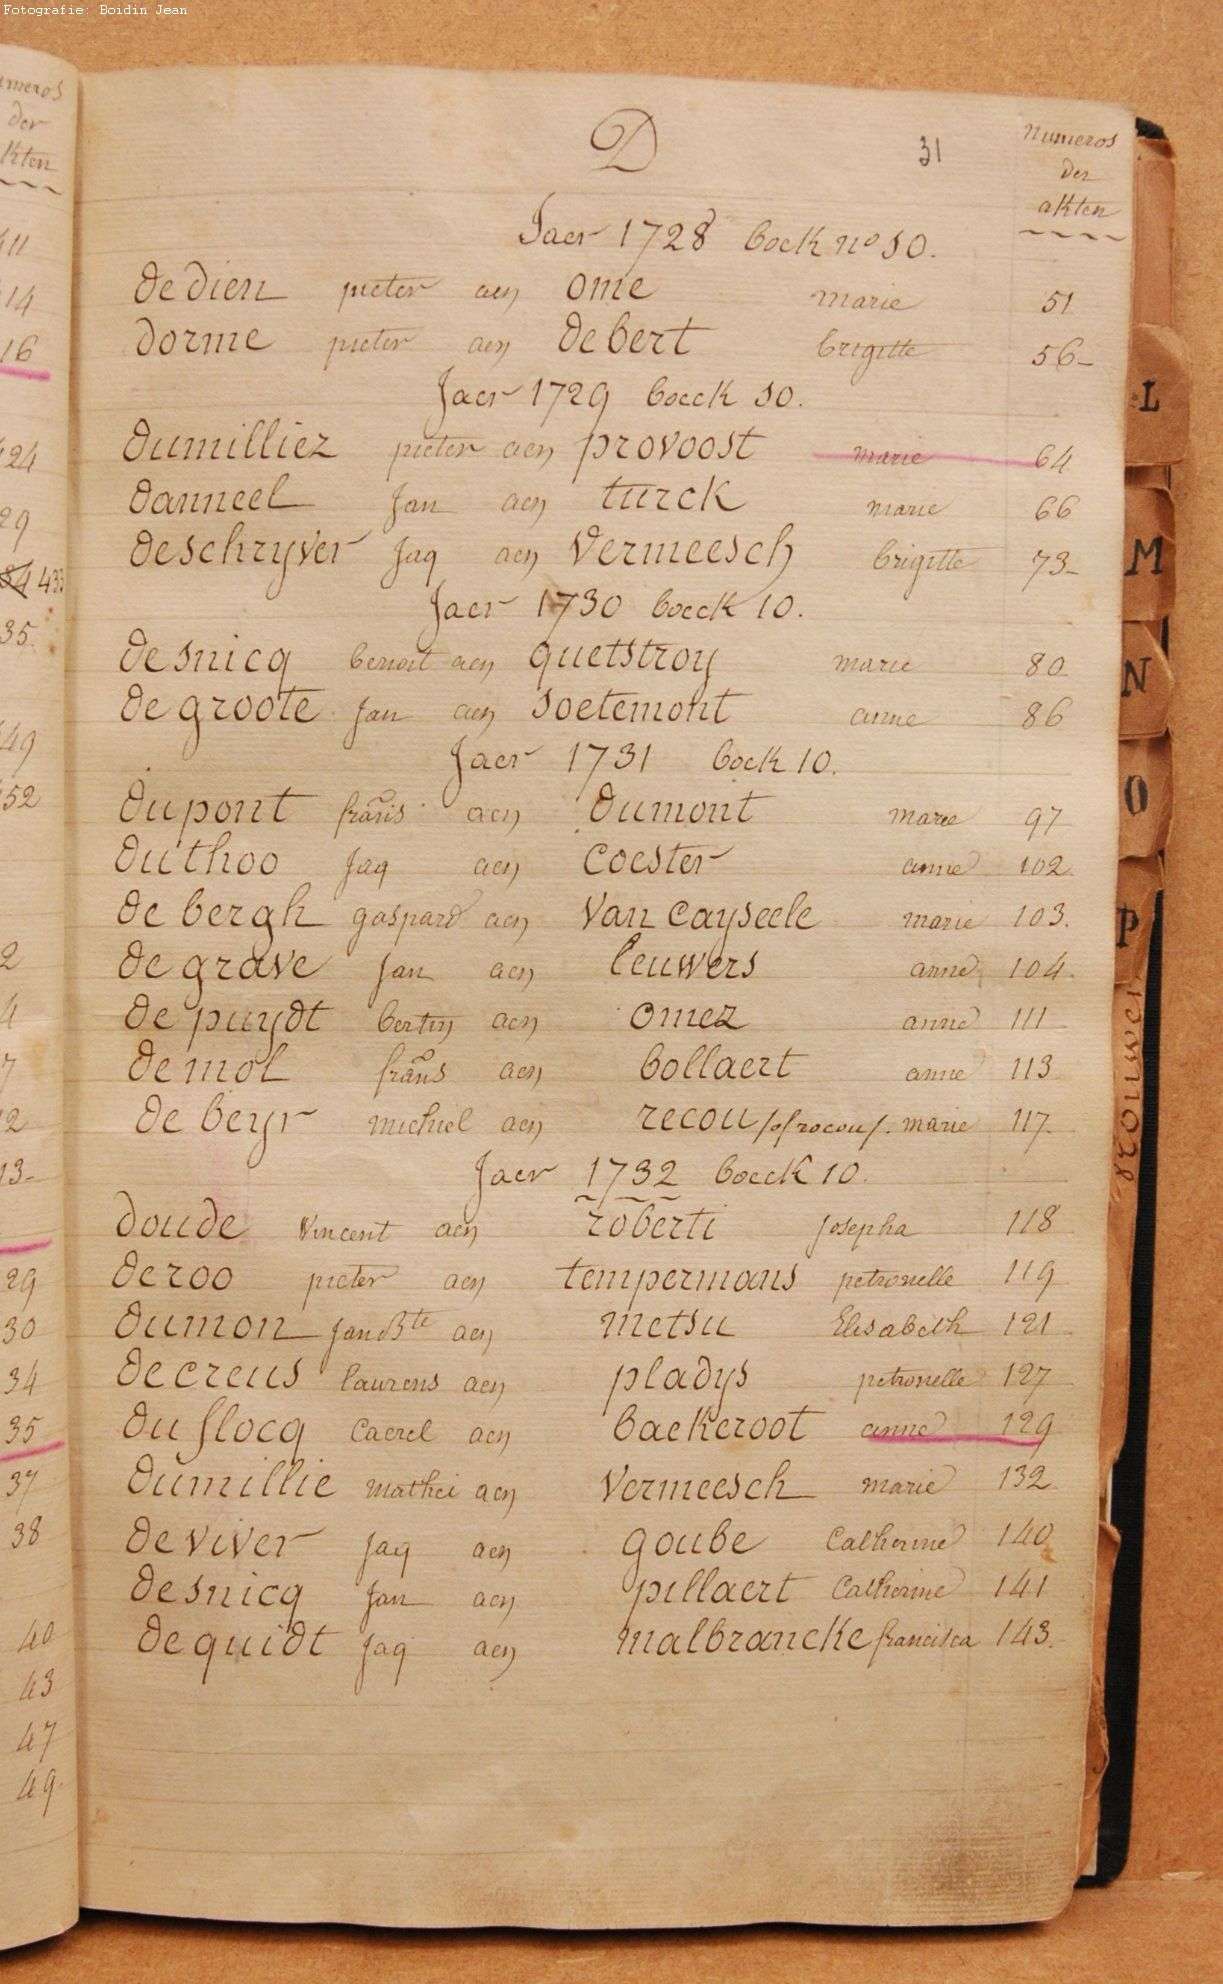 Fotografie: Boidin Jean
D
31
numeros
der
akten
Jaer 1728 boek no 10.
de dien pieter aen ome marie 51
dorme pieter aen de bert brigitte 56-
Jaer 1729 boeck 10.
dumilliez pieter aen provoost marie 64
danneel Jan aen turck marie 66
deschryver Jaq aen vermeesch brigitte 73-
Jaer 1730 boeck 10.
desnicq benoit aen quetstroy marie 80
de groote Jan aen soetemont anne 86
Jaer 1731 boek 10.
dupont frans aen dumont marie 97
duthoo Jaq aen coester anne 102
de bergh gaspard aen van cayseele marie 103.
de grave Jan aen leuwers anne 104.
de puydt bertin aen omez anne 111
de mol frans aen bollaert anne 113
de beyr michiel aen recou /of rocou/. marie 117-
Jaer 1732 boeck 10.
doude vincent aen roberti Josepha 118
deroo pieter aen tempermans petronelle 119
dumon Jan Bte aen metsu Elisabeth 121
decreus laurens aen pladys petronelle 127
du flocq Caerel aen baekeroot anne 129
dumillie mathei aen vermeesch marie 132
de viver Jaq aen goube Catherine 140
desnicq Jan aen pillaert Catherine 141
dequidt Jaq aen malbrancke francisca 143.
L
M
N
O
P
umeros
der
kten
11
14
16
24
29
433
35
49
52
2
4
7
2
13-
29
30
34
35
37
38
40
43
47
49.